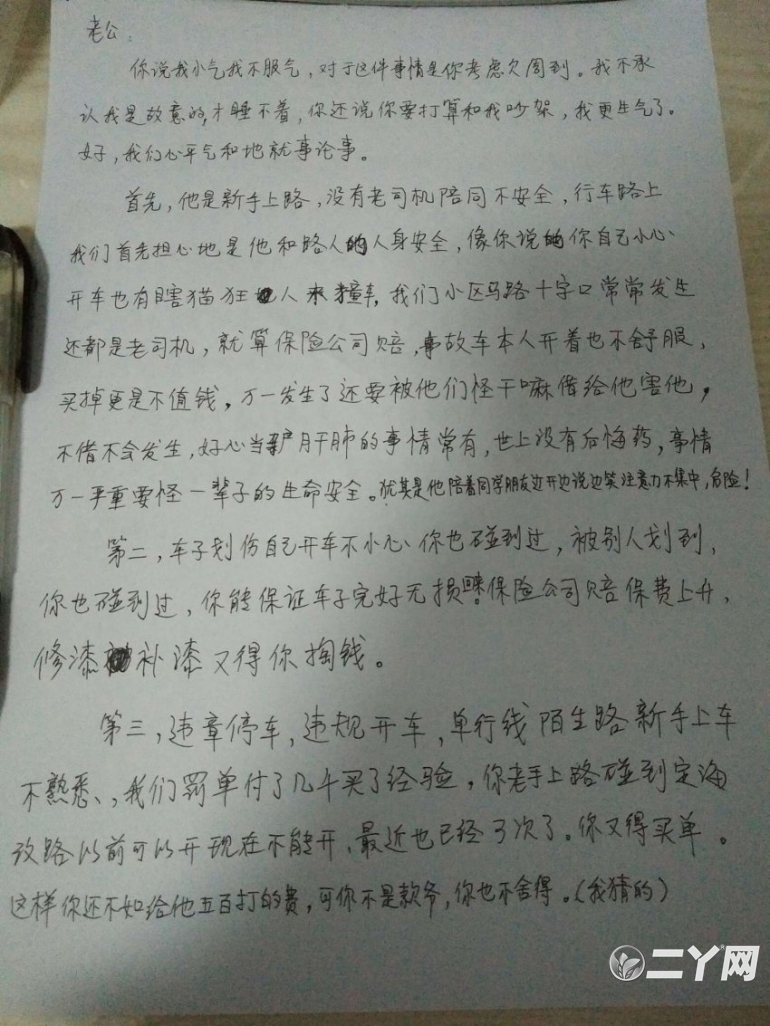 老公：
你说我小气我不服气，对于这件事情是你考虑欠周到。我不承
认我是故意的，才睡不着，你还说你要打算和我吵架，我更生气了。
好，我们心平气和地就事论事。
首先，他是新手上路，没有老司机陪同不安全，行车路上
我们首先担心地是他和路人的人身安全，像你说的你自己小心
开车也有瞎猫狂人来撞，我们小区马路十字口常常发生
还都是老司机，就算保险公司赔，事故车本人开着也不舒服，
买掉更是不值钱，万一发生了还要被他们怪干嘛借给他害他，
不借不会发生，好心当驴肝肺的事情常有，世上没有后悔药，事情
万一严重要怪一辈子的生命安全。犹其是他陪着同学朋友边开边说边笑注意力不集中，危险！
第二，车子划伤自己开车不小心你也碰到过，被别人划到，
你也碰到过，你能保证车子完好无损嘛！保险公司赔保费上升，
修漆补漆又得你掏钱。
第三，违章停车，违规开车，单行线陌生路新手上车
不熟悉、，我们罚单付了几千买了经验，你老手上路碰到定海
改路以前可以开现在不能开、最近也已经3次了。你又得买单。
这样你还不如给他五百打的费，可你不是款爷，你也不舍得。（我猜的）
二丫网